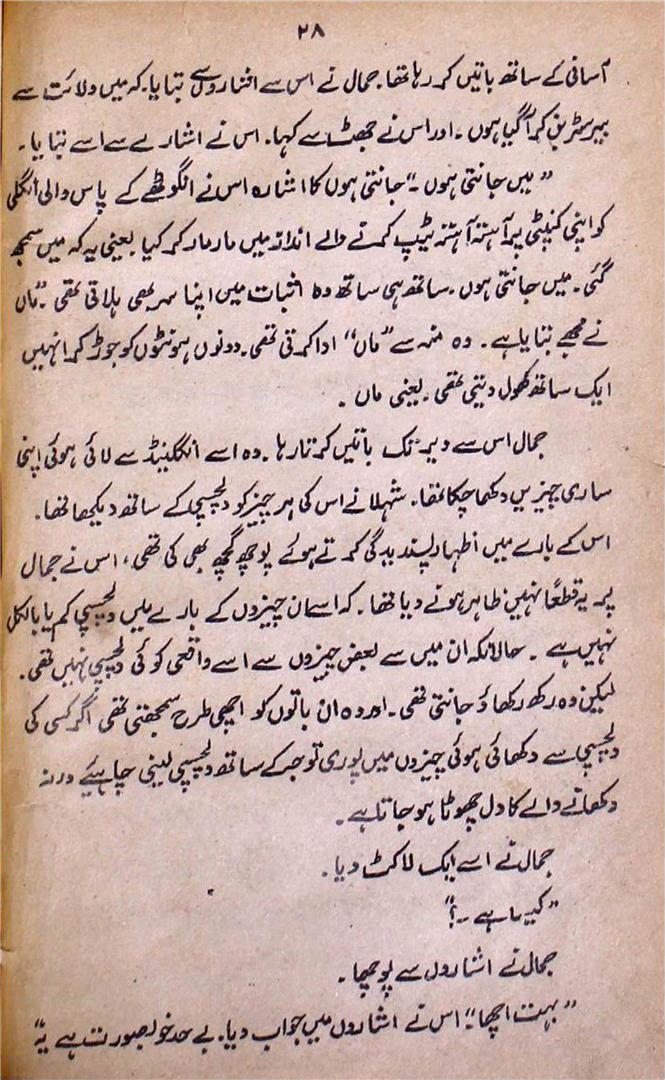 ۲۸
آسانی کے ساتھ باتیں کر رہا تھا۔ جمال نے اس سے اشاروں سے بتایا۔ کہ میں ولائت سے
بیرسٹر بن کر آ گیا ہوں۔ اور اس نے جھٹ سے کہا۔ اس نے اشارے سے اسے بتایا۔
”میں جانتی ہوں۔“ جانتی ہوں کا اشارہ اس نے انگوٹھے کے پاس والی انگلی
کو اپنی کنپٹی پر آہستہ آہستہ ٹیپ کرنے والے انداز میں مار مار کر کیا یعنی یہ کہ میں سمجھ
گئی۔ میں جانتی ہوں۔ ساتھ ہی ساتھ وہ اثبات میں اپنا سر بھی ہلاتی تھی۔ ”ماں
نے مجھے بتایا ہے۔ وہ منہ سے ”ماں“ ادا کرتی تھی۔ دونوں ہونٹوں کو جوڑ کر انہیں
ایک ساتھ کھول دیتی تھی۔ یعنی ماں۔
جمال اس سے دیر تک باتیں کرتا رہا۔ وہ اسے انگلینڈ سے لائی ہوئی اپنی
ساری چیزیں دکھا چکا تھا۔ شہلا نے اس کی ہر چیز کو دلچسپی کے ساتھ دیکھا تھا۔
اس کے بارے میں اظہار پسندیدگی کرتے ہوئے پوچھ گچھ بھی کی تھی، اس نے جمال
پر یہ قطعاً نہیں ظاہر ہونے دیا تھا۔ کہ اسے ان چیزوں کے بارے میں دلچسپی کم یا بالکل
نہیں ہے۔ حالانکہ ان میں سے بعض چیزوں سے اسے واقعی کوئی دلچسپی نہیں تھی۔
لیکن وہ رکھ رکھاؤ جانتی تھی۔ اور وہ ان باتوں کو اچھی طرح سمجھتی تھی اگر کسی کی
دلچسپی سے دکھائی ہوئی چیزوں میں پوری توجہ کے ساتھ دلچسپی لینی چاہئیے ورنہ
دکھانے والے کا دل چھوٹا ہو جاتا ہے۔
جمال نے اسے ایک لاکٹ دیا۔
”کیسا ہے۔؟“
جمال نے اشاروں سے پوچھا۔
”بہت اچھا۔“ اس نے اشاروں میں جواب دیا۔ بے حد خوبصورت ہے یہ“